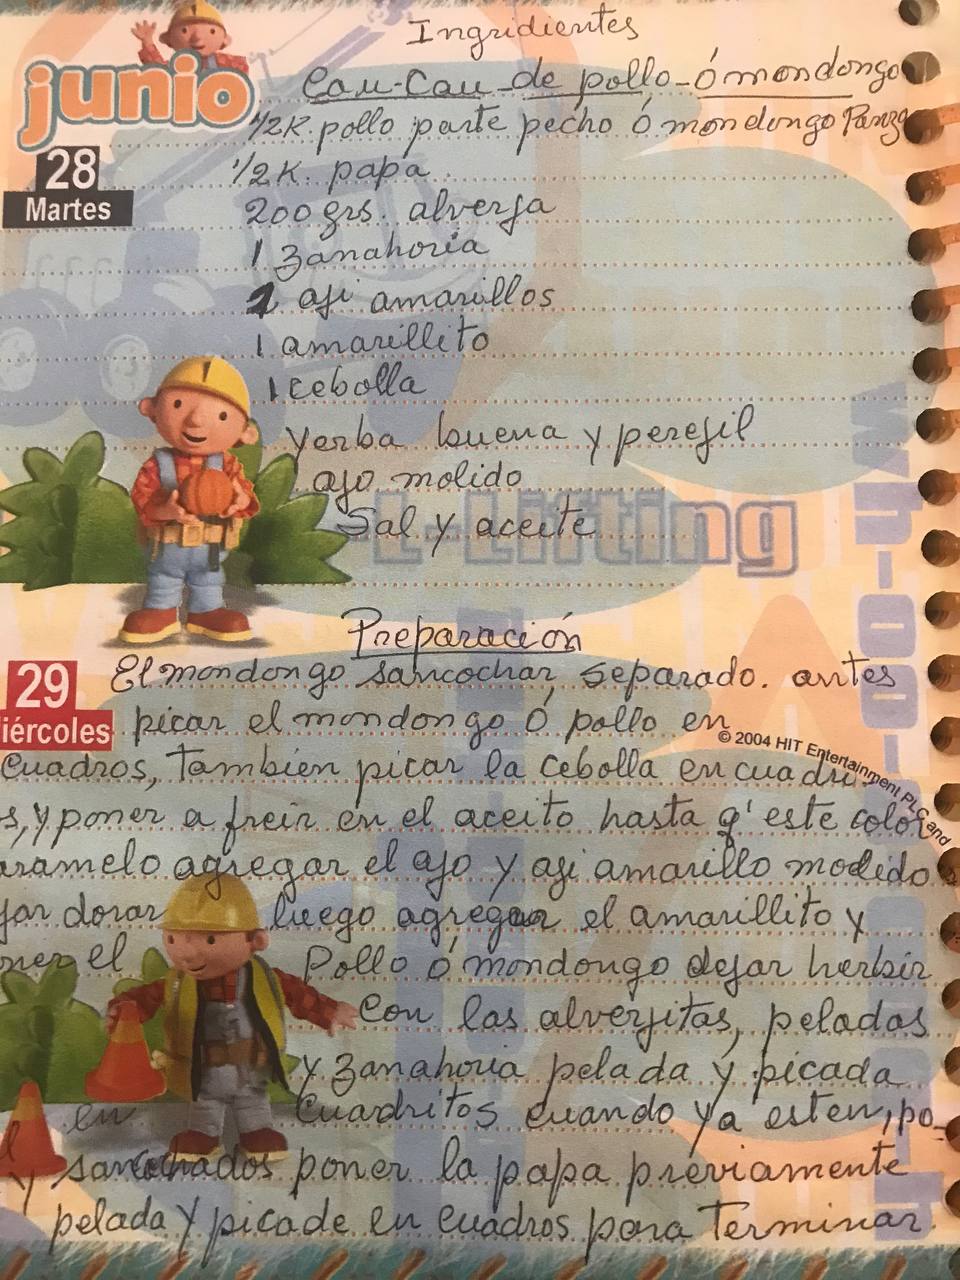 Ingridientes
junio
Cau-Cau-de pollo-ó mondongo
1/2K. pollo parte pecho ó mondongo Panza
28
1/2K. papa
Martes
200 grs. alverja
1 zanahoria
2 aji amarillos
1 amarillito
1 cebolla
Yerba buena y perejil
ajo molido
L-Lifting
Sal y aceite
wh-oo-
Preparación
29
iércoles
El mondongo sancochar, separado. antes
picar el mondongo ó pollo en
© 2004 HIT Entertainment PLC and
cuadros, también picar la cebolla en cuadri
s, y poner a freir en el aceito hasta q' este color
aramelo agregar el ajo y aji amarillo molido
jar dorar luego agregar el amarillito y
ner el Pollo ó mondongo dejar herbir
con las alverjitas, peladas
y zanahoria pelada y picada
en cuadritos cuando ya esten, po-
y sancochados poner la papa previamente
pelada y picade en cuadros para Terminar.